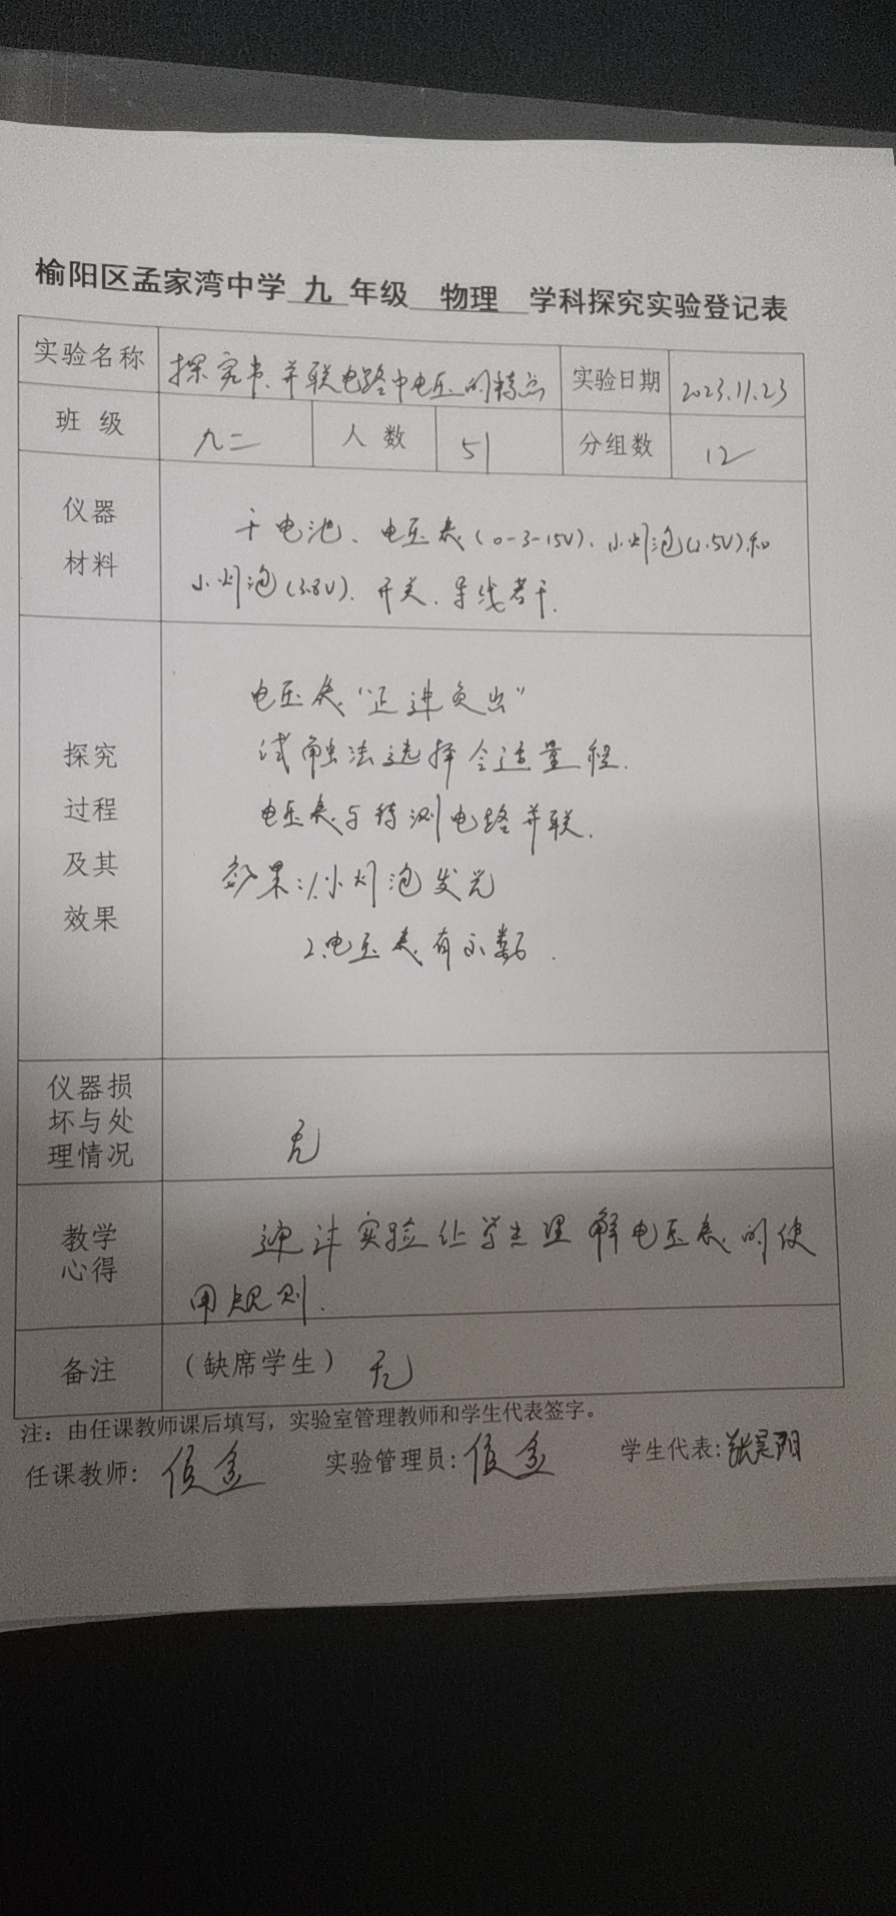 榆阳区孟家湾中学 九 年级 物理 学科探究实验登记表
实验名称 探究串、并联电路中电压的特点 实验日期 2023.11.23
班级 九二 人数 51 分组数 12
仪器
材料
干电池、电压表(0-3-15V)、小灯泡(2.5V)和
小灯泡(3.8V)、开关、导线若干.
探究
过程
及其
效果
电压表“正进负出”
试触法选择合适量程.
电压表与待测电路并联.
效果:1.小灯泡发光
2.电压表有示数.
仪器损
坏与处
理情况
无
教学
心得
通过实验让学生理解电压表的使
用规则.
备注 (缺席学生) 无
注：由任课教师课后填写，实验室管理教师和学生代表签字。
任课教师: 实验管理员: 学生代表: 张昊阳